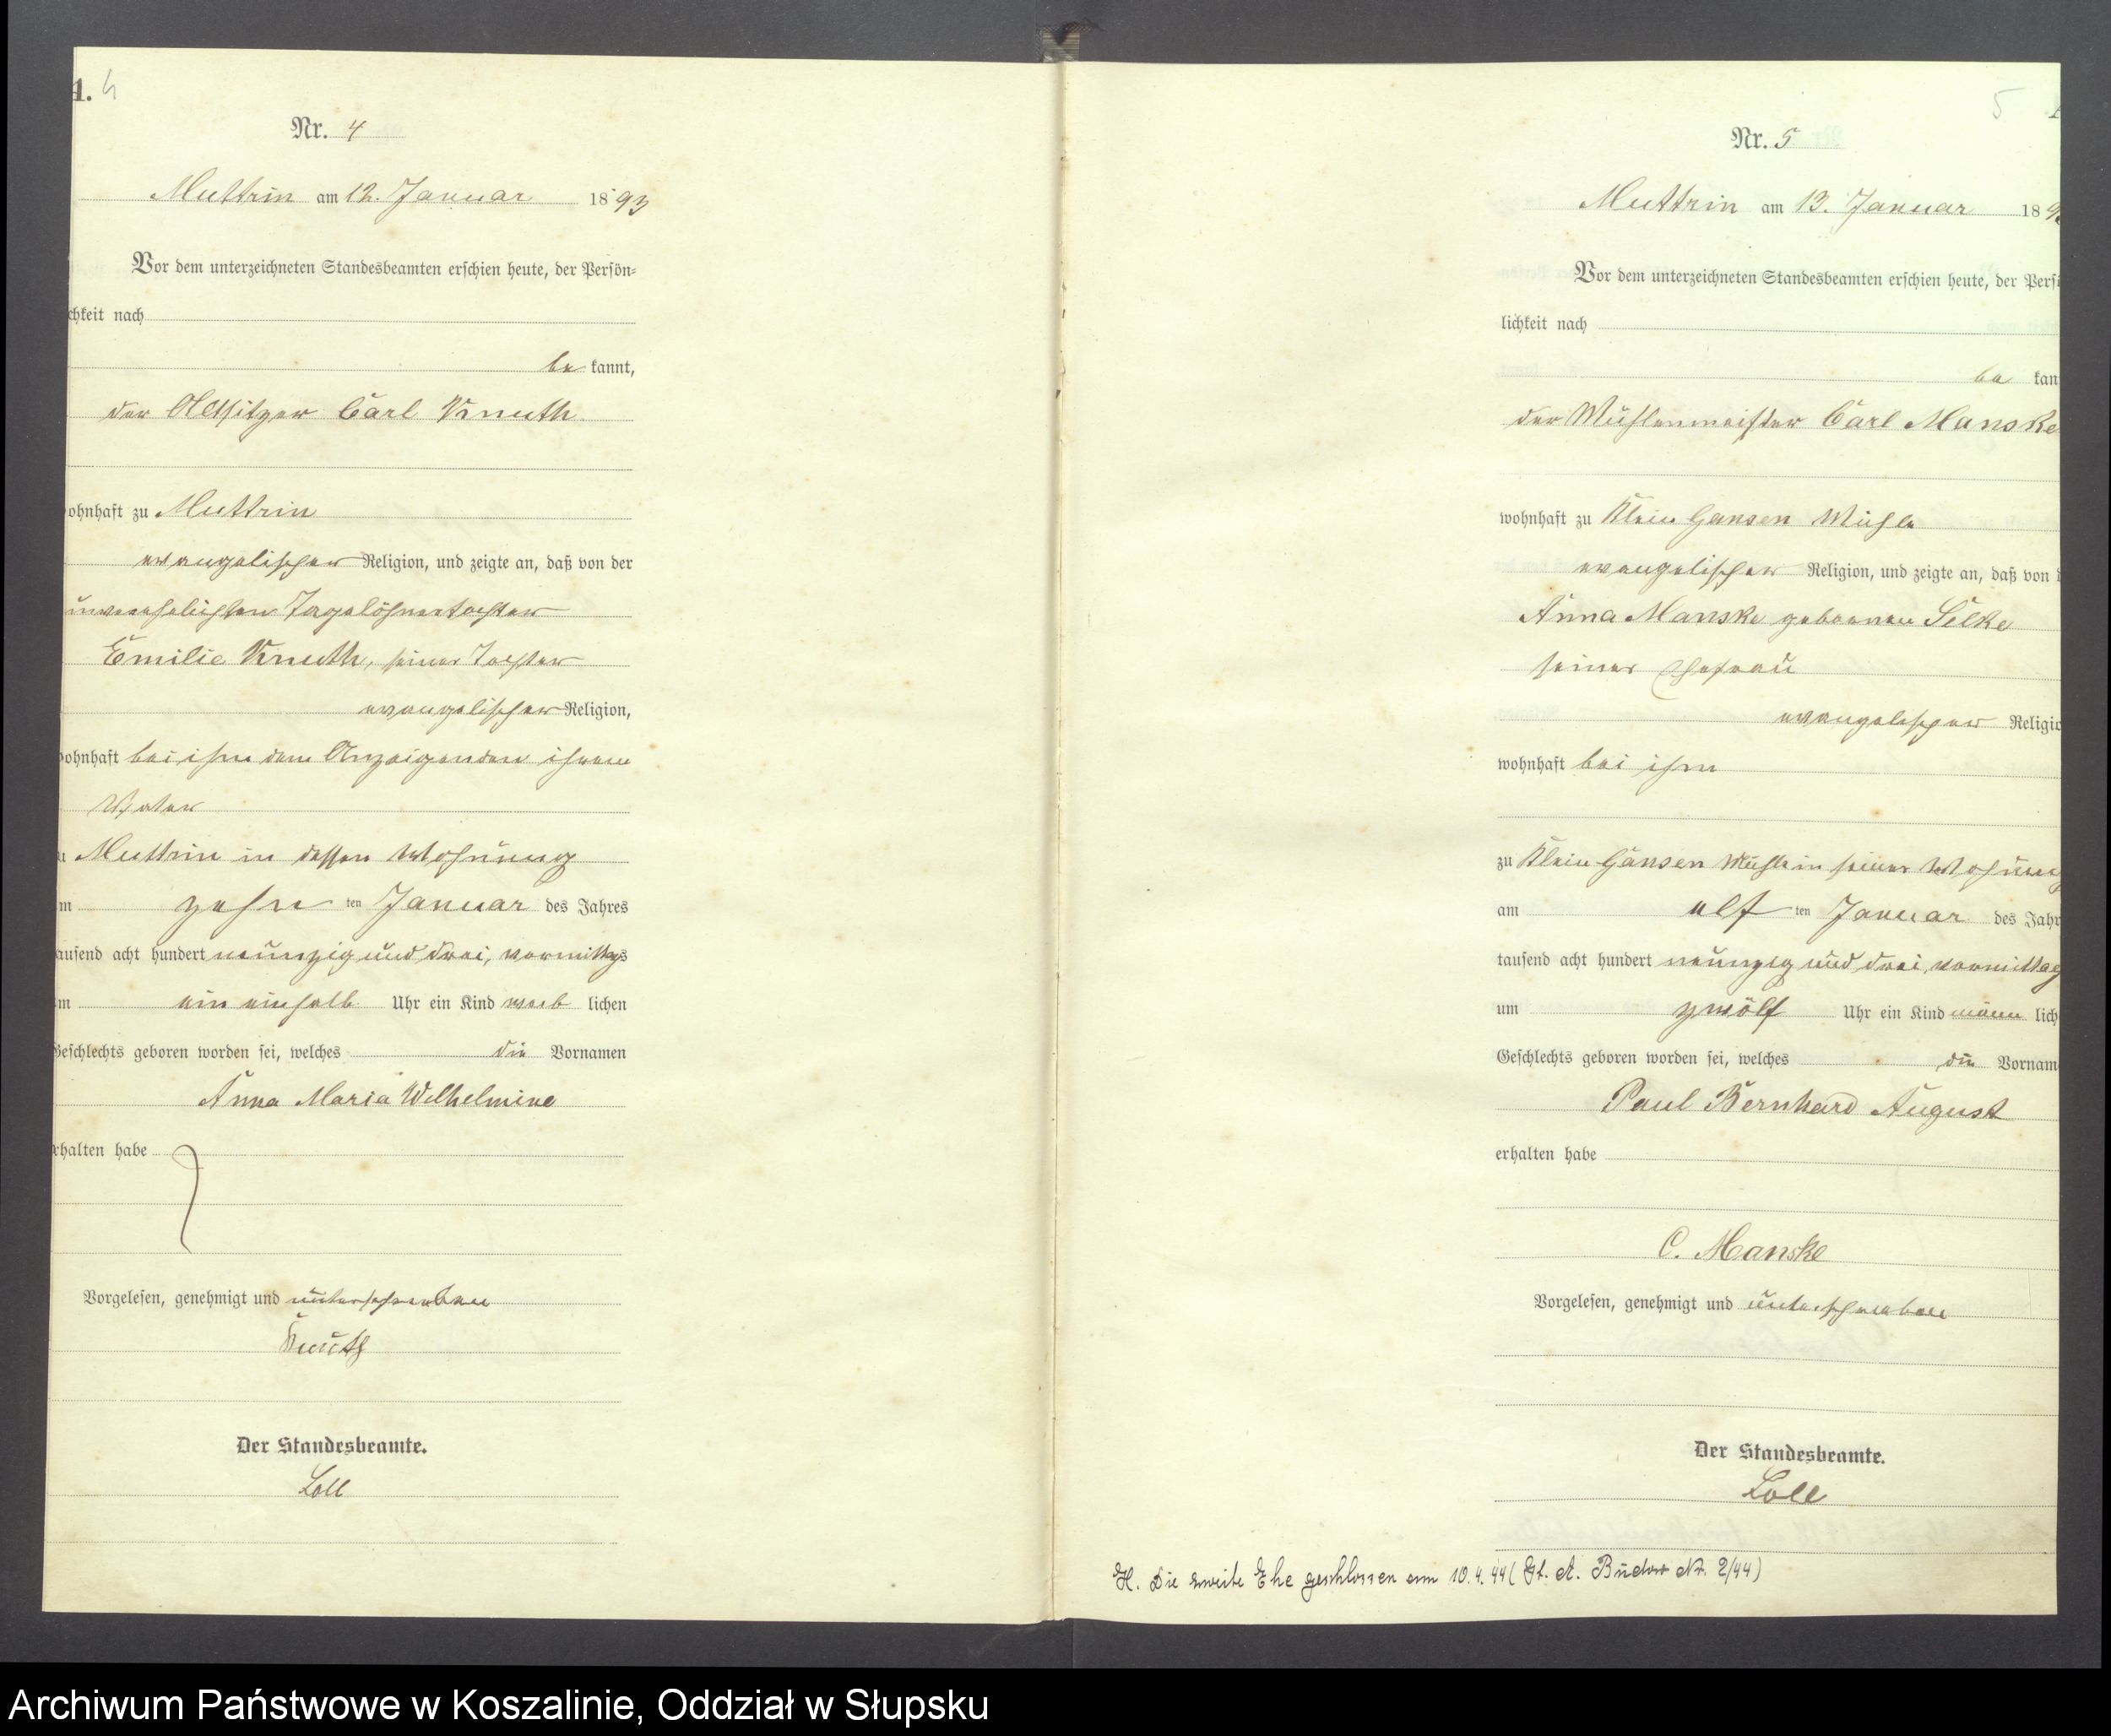 1. 4
Nr. 4
Muttrin am 12. Januar 1893
Vor dem unterzeichneten Standesbeamten erschien heute, der Persön-
chkeit nach
be kannt,
der Altsitzer Carl Knuth
ohnhaft zu Muttrin
evangelischer Religion, und zeigte an, daß von der
unverehelichten Tagelöhnertochter
Emilie Knuth, seiner Tochter
evangelischer Religion,
ohnhaft bei ihm dem Anzeigenden ihrem
Vater
u Muttrin in dessen Wohnung
m zehn ten Januar des Jahres
ausend acht hundert neunzig und drei, vormittags
m ein einhalb Uhr ein Kind weib lichen
Geschlechts geboren worden sei, welches die Vornamen
Anna Maria Wilhelmine
rhalten habe
Vorgelesen, genehmigt und unterschrieben
Knuth
Der Standesbeamte.
Loll
5
Nr. 5
Muttrin am 13. Januar 189
Vor dem unterzeichneten Standesbeamten erschien heute, der Persö
lichkeit nach
be kan
der Mühlenmeister Carl Manske
wohnhaft zu Klein Gansen Mühle
evangelischer Religion, und zeigte an, daß von d
Anna Manske geborenen Selke
seiner Ehefrau
evangelischer Religio
wohnhaft bei ihm
zu Klein Gansen Mühle in seiner Wohnung
am elf ten Januar des Jahr
tausend acht hundert neunzig und drei, vormittag
um zwölf Uhr ein Kind männ lich
Geschlechts geboren worden sei, welches die Vornam
Paul Bernhard August
erhalten habe
C. Manske
Vorgelesen, genehmigt und unterschrieben
Der Standesbeamte.
Loll
H. Die zweite Ehe geschlossen am 10.4.44 (St. A. Budow Nr. 2/44)
Archiwum Państwowe w Koszalinie, Oddział w Słupsku